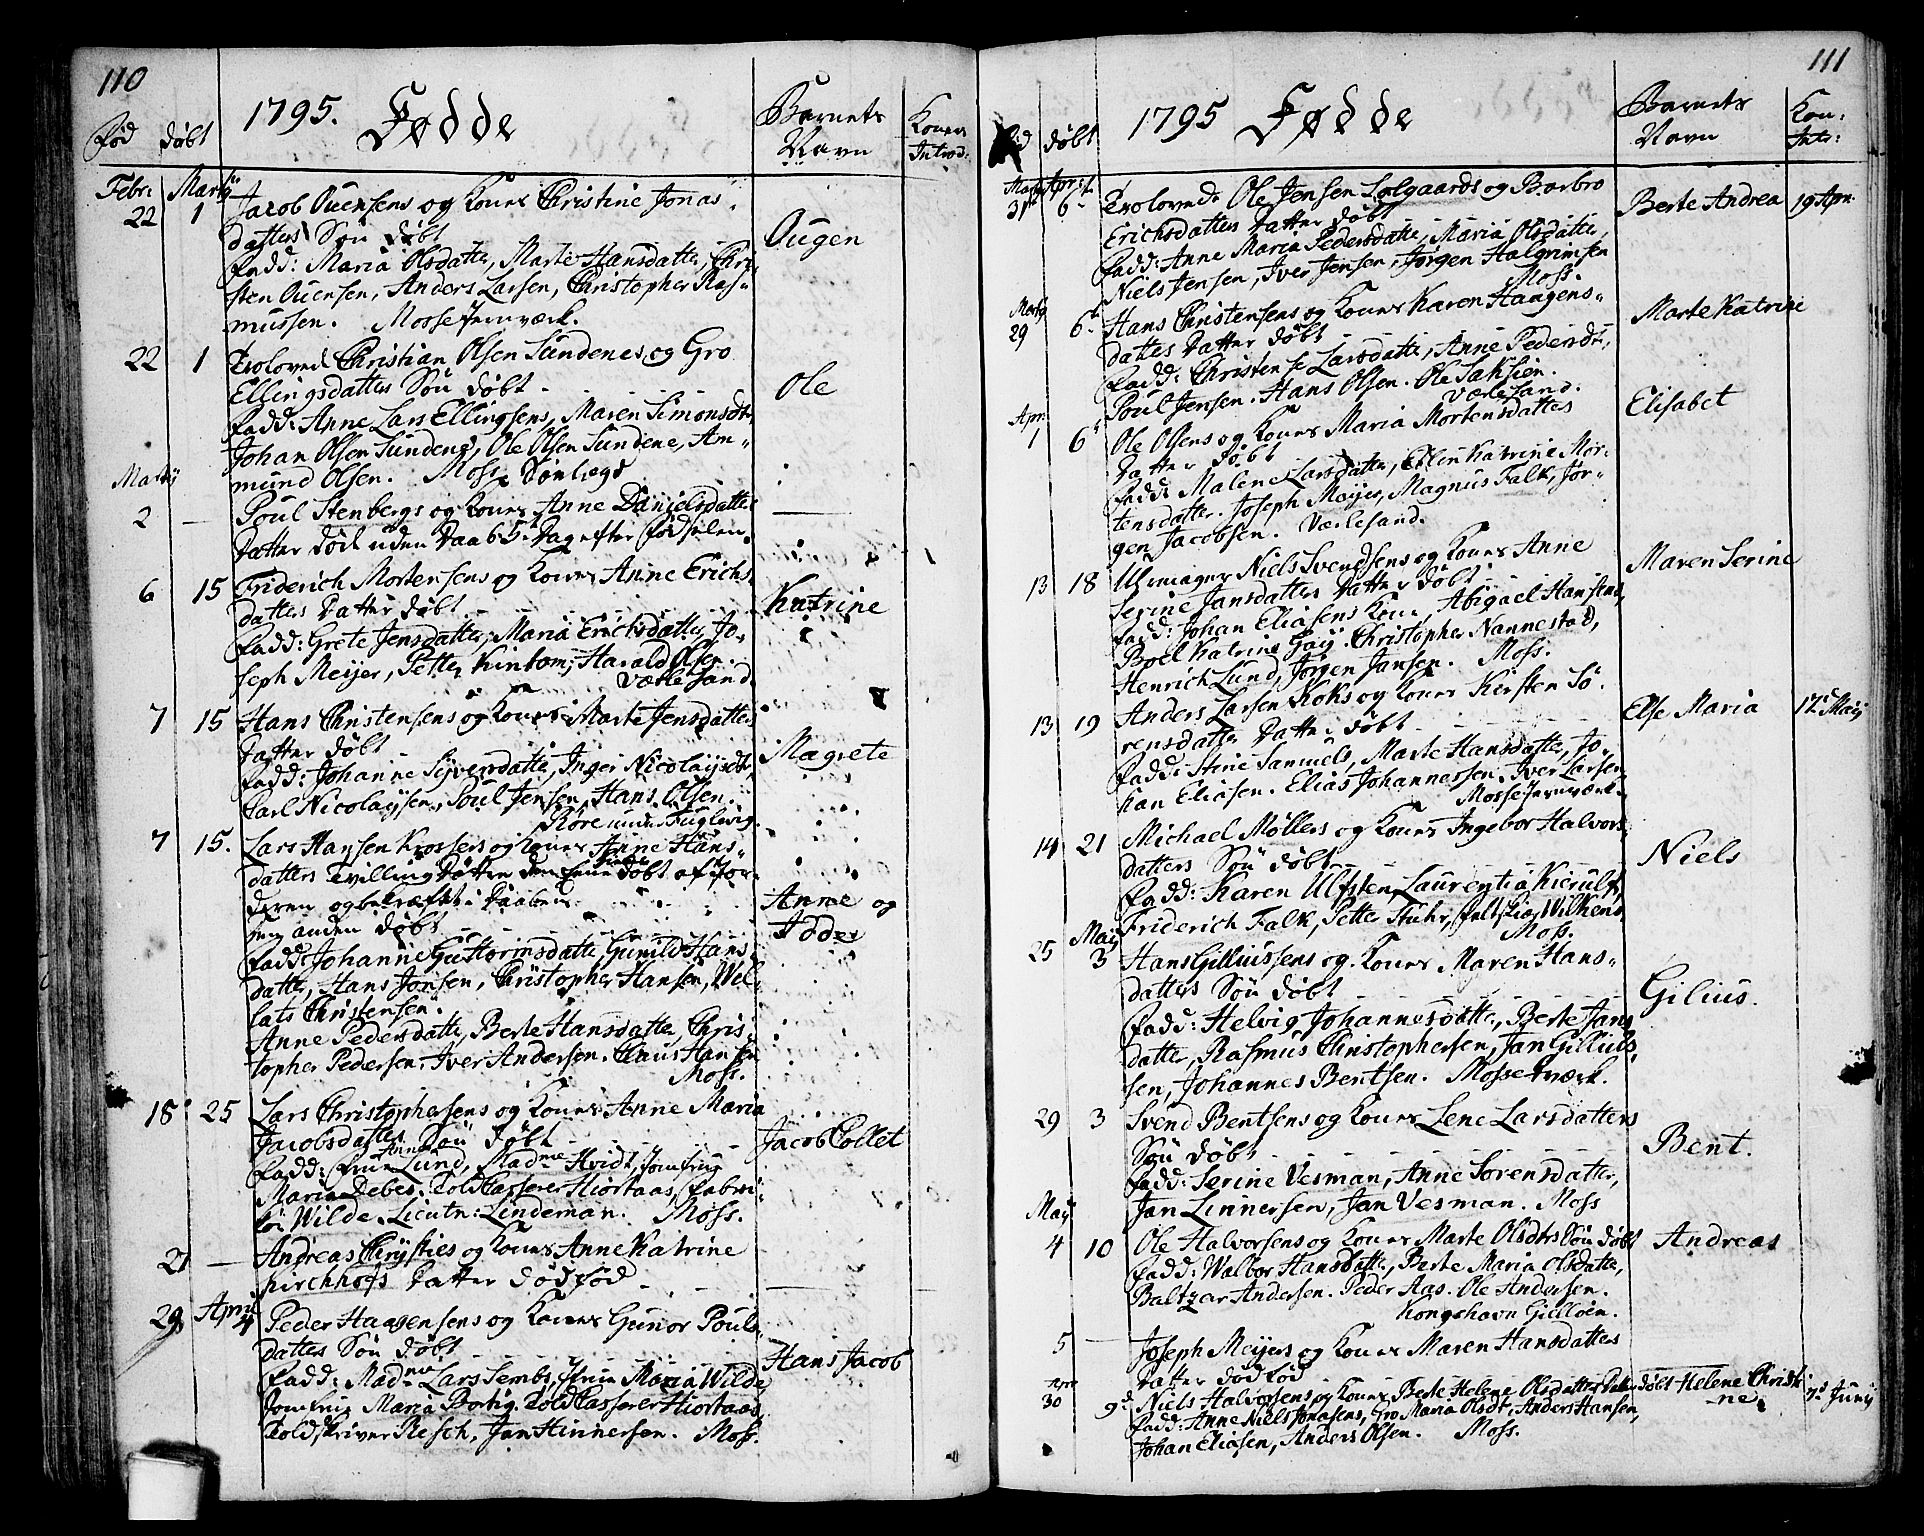 110
1795. Fødde
Fød døbt
Barnets Navn
Koners Introd:
Febr: Martij
22 1 Jacob Ouensens og Kones Christine Jonas-
datters Søn døbt
Fadd: Maria Olsdatter, Marte Hansdatter, Chri-
sten Ouensen, Anders Larsen, Christopher Ras-
mussen. Mosse Jernværk.
Ougen
22 1 Troloved Christian Olsen Sundenes og Gro
Ellingsdatters Søn døbt
Fadd: Anne Lars Ellingsens, Maren Simonsdtr
Johan Olsen Sundene, Ole Olsen Sundene, Am-
mund Olsen. Moss
Ole
Martij
2 — Poul Stenbergs og Kones Anne Danielsdatter
Datter død uden Daab 5 Dag efter Fødselen.
6 15 Friderich Mortensens og Kones Anne Erichs
datters Datter døbt
Fadd: Grete Jensdatter, Maria Erichsdatter, Jo-
seph Meijer, Petter Kintom, Harald Olsen
Værlesand.
Katrine
7 15 Hans Christensens og Kones Marte Jensdatters
Datter døbt
Fadd: Johanne Syversdatter, Inger Nicolaysdtr,
Carl Nicolaysen, Poul Jensen, Hans Olsen.
Røre under Fuglevig.
Magrete
7 15. Lars Hansen Krossers og Kones Anne Hans-
datters Tvilling Døttre den Eene døbt af Jor-
deren og bekræftet i Daaben
den anden døbt
Fadd: Johanne Guttormsdatter, Gunild Hans
datter, Hans Jonsen, Christopher Hansen, Wel-
lats Christensen.
Anne Pedersdatter, Berte Hansdatter, Chris-
topher Pedersen, Iver Andersen. Claus Hansen
Moss.
Anne og
18 25 Lars Christophersens og Kones Anne Maria
Jacobsdatters Søn døbt
Fadd: Frue Anne Lund, Madme Hvidt, Jomfrue
Maria Debes, Told Casserer Hiortaas, Fabri-
kør Wilde. Lieutn: Lindeman. Moss.
Jacob Collet
27 — Andreas Chrysties og Kones Anne Katrine
Kirchhofs Datter dødfød
April
29 4 Peder Haagensens og Kones Gunor Pouls-
datters Søn døbt
Fadd: Madme Lars Sembs, Frue Maria Wilde
Jomfrue Maria Borkig, Told Casserer Hiortaas
Toldskriver Resch, Jan Hinnersen. Moss.
Hans Jacob
111
1795 Fødde
døbt
Barnets Navn
Kon: Intr:
Martij April
31 6 Troloved Ole Jensen Lølgaards og Barbro
Erichsdatters Datter døbt
Fadd: Anne Maria Pedersdatter, Maria Olsdatter,
Niels Jensen, Iver Jensen, Jørgen Halgrimsen
Moss.
Berte Andrea 19 Apr:
Martij
29 6 Hans Christensens og Kones Karen Haagens-
datters Datter døbt
Fadd: Christense Larsdatter, Anne Pedersdtr,
Poul Jensen. Hans Olsen. Ole Saksien.
Værlesand.
Marte Katrine
Apr:
1 6 Ole Olsens og Kones Maria Mortensdatters
Datter døbt
Fadd: Malene Larsdatter, Ellen Katrine Mor-
tensdatter. Joseph Meijer, Magnus Falk, Jør-
gen Jacobsen. Værlesand.
Elisabet
13 18 Uhrmager Niels Svendsens og Kones Anne
Serine Jansdatters Datter døbt
Fadd: Johan Eliasens Kone, Abigael Hansens,
Boel Katrine Gay. Christopher Nannestad,
Henrich Lund, Jørgen Jansen. Moss.
Maren Serine
13 19 Anders Larsen Koks og Kones Kirsten Sø-
rensdatter Datter døbt
Fadd: Stine Samuels, Marte Hansdatter, Jo-
han Eliasen. Elias Johannessen. Iver Larsen
Mosse Jernværk.
Else Maria 12 Maij
14 21 Michael Møllers og Kones Ingebor Halvors
datters Søn døbt
Fadd: Karen Ulfsten, Laurentia Kierulf,
Friderich Falk, Petter Stuhr, Wilkens
Moss.
Niels
Maij
25 3 Hans Gilliussens og Kones Maren Hans-
datters Søn døbt
Fadd: Helvig Johannesdatter, Berte Jans
datter, Rasmus Christophersen, Jan Gillius-
sen, Johannes Bentsen. Mosse Værk.
Gilius.
29 3 Svend Bentsens og Kones Lene Larsdatters
Søn døbt
Fadd: Serine Vesman, Anne Sørensdatter,
Jan Linnersen, Jan Vesman. Moss
Bent.
Maij
4 10 Ole Halvorsens og Kones Marte Olsdtrs Søn døbt
Fadd: Walbor Hansdatter, Berte Maria Olsdatter,
Baltzar Andersen. Peder Aas. Ole Andersen.
Kongshavn Gielløen.
Andreas
5 — Joseph Meijers og Kones Maren Hansdatters
Datter dødfød
Apr
30 9d Niels Halvorsens og Kones Berte Helene Olsdatters Datter døbt
Fadd: Anne Niels Jonasens, Gro Maria Olsdt, Anders Hansen,
Johan Eliasen, Anders Olsen. Moss.
Helene Christi-
ne 7d Junij